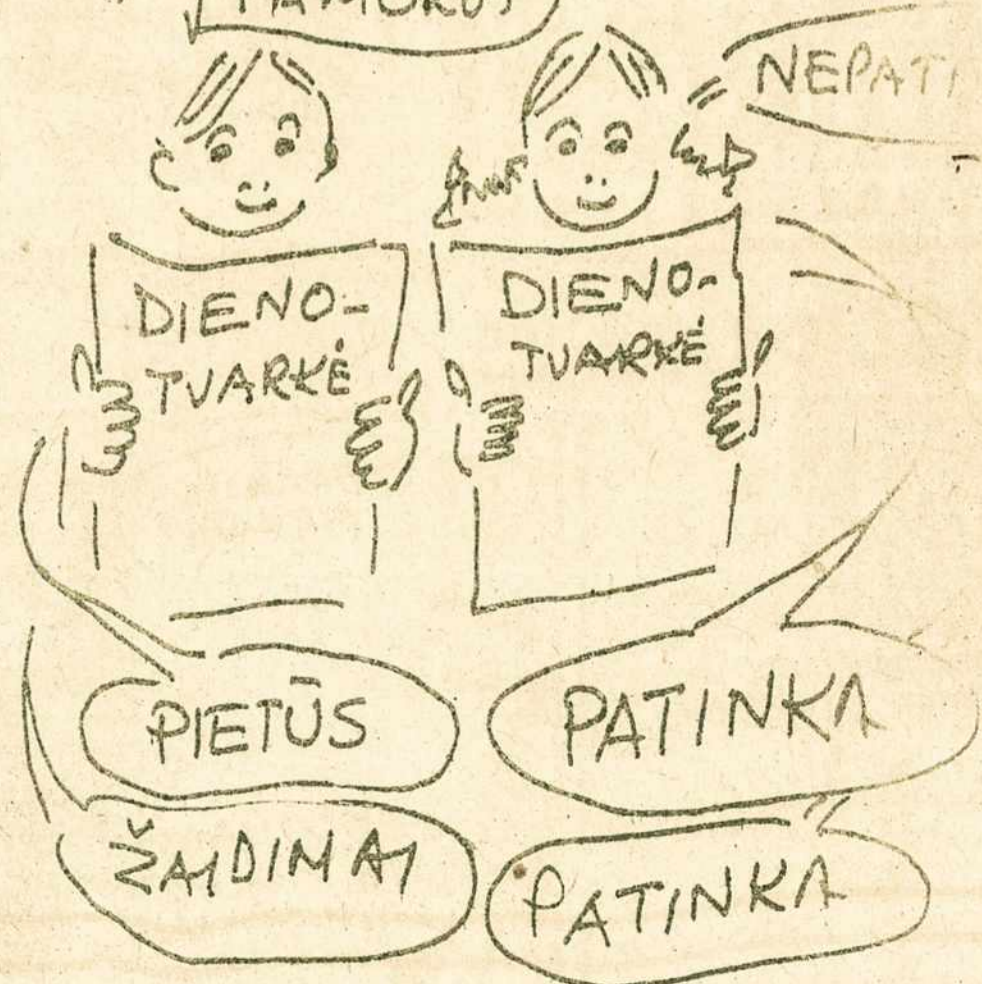 PAMOKOS
NEPATI
DIENO-
TVARKĖ
DIENO-
TVARKĖ
PIETŪS
PATINKA
ŽAIDIMAI
PATINKA